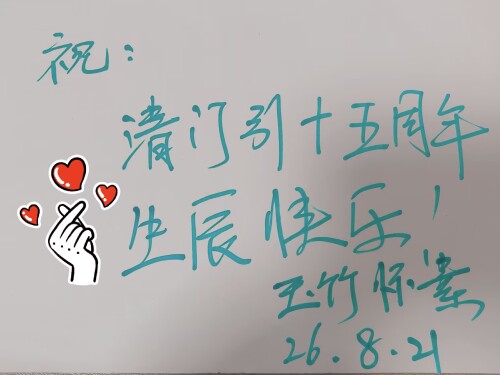 祝：
清门引十五周年
生辰快乐！
玉竹怀素
26.8.21